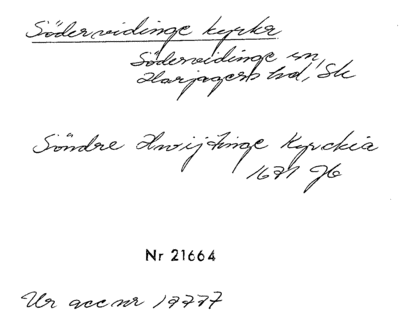 Södervidinge kyrka
Södervidinge sn,
Harjagers hd, Sk
Söndre Hwijdinge Kyrckia
1671 Jb
Nr 21664
Ur acc nr 19777